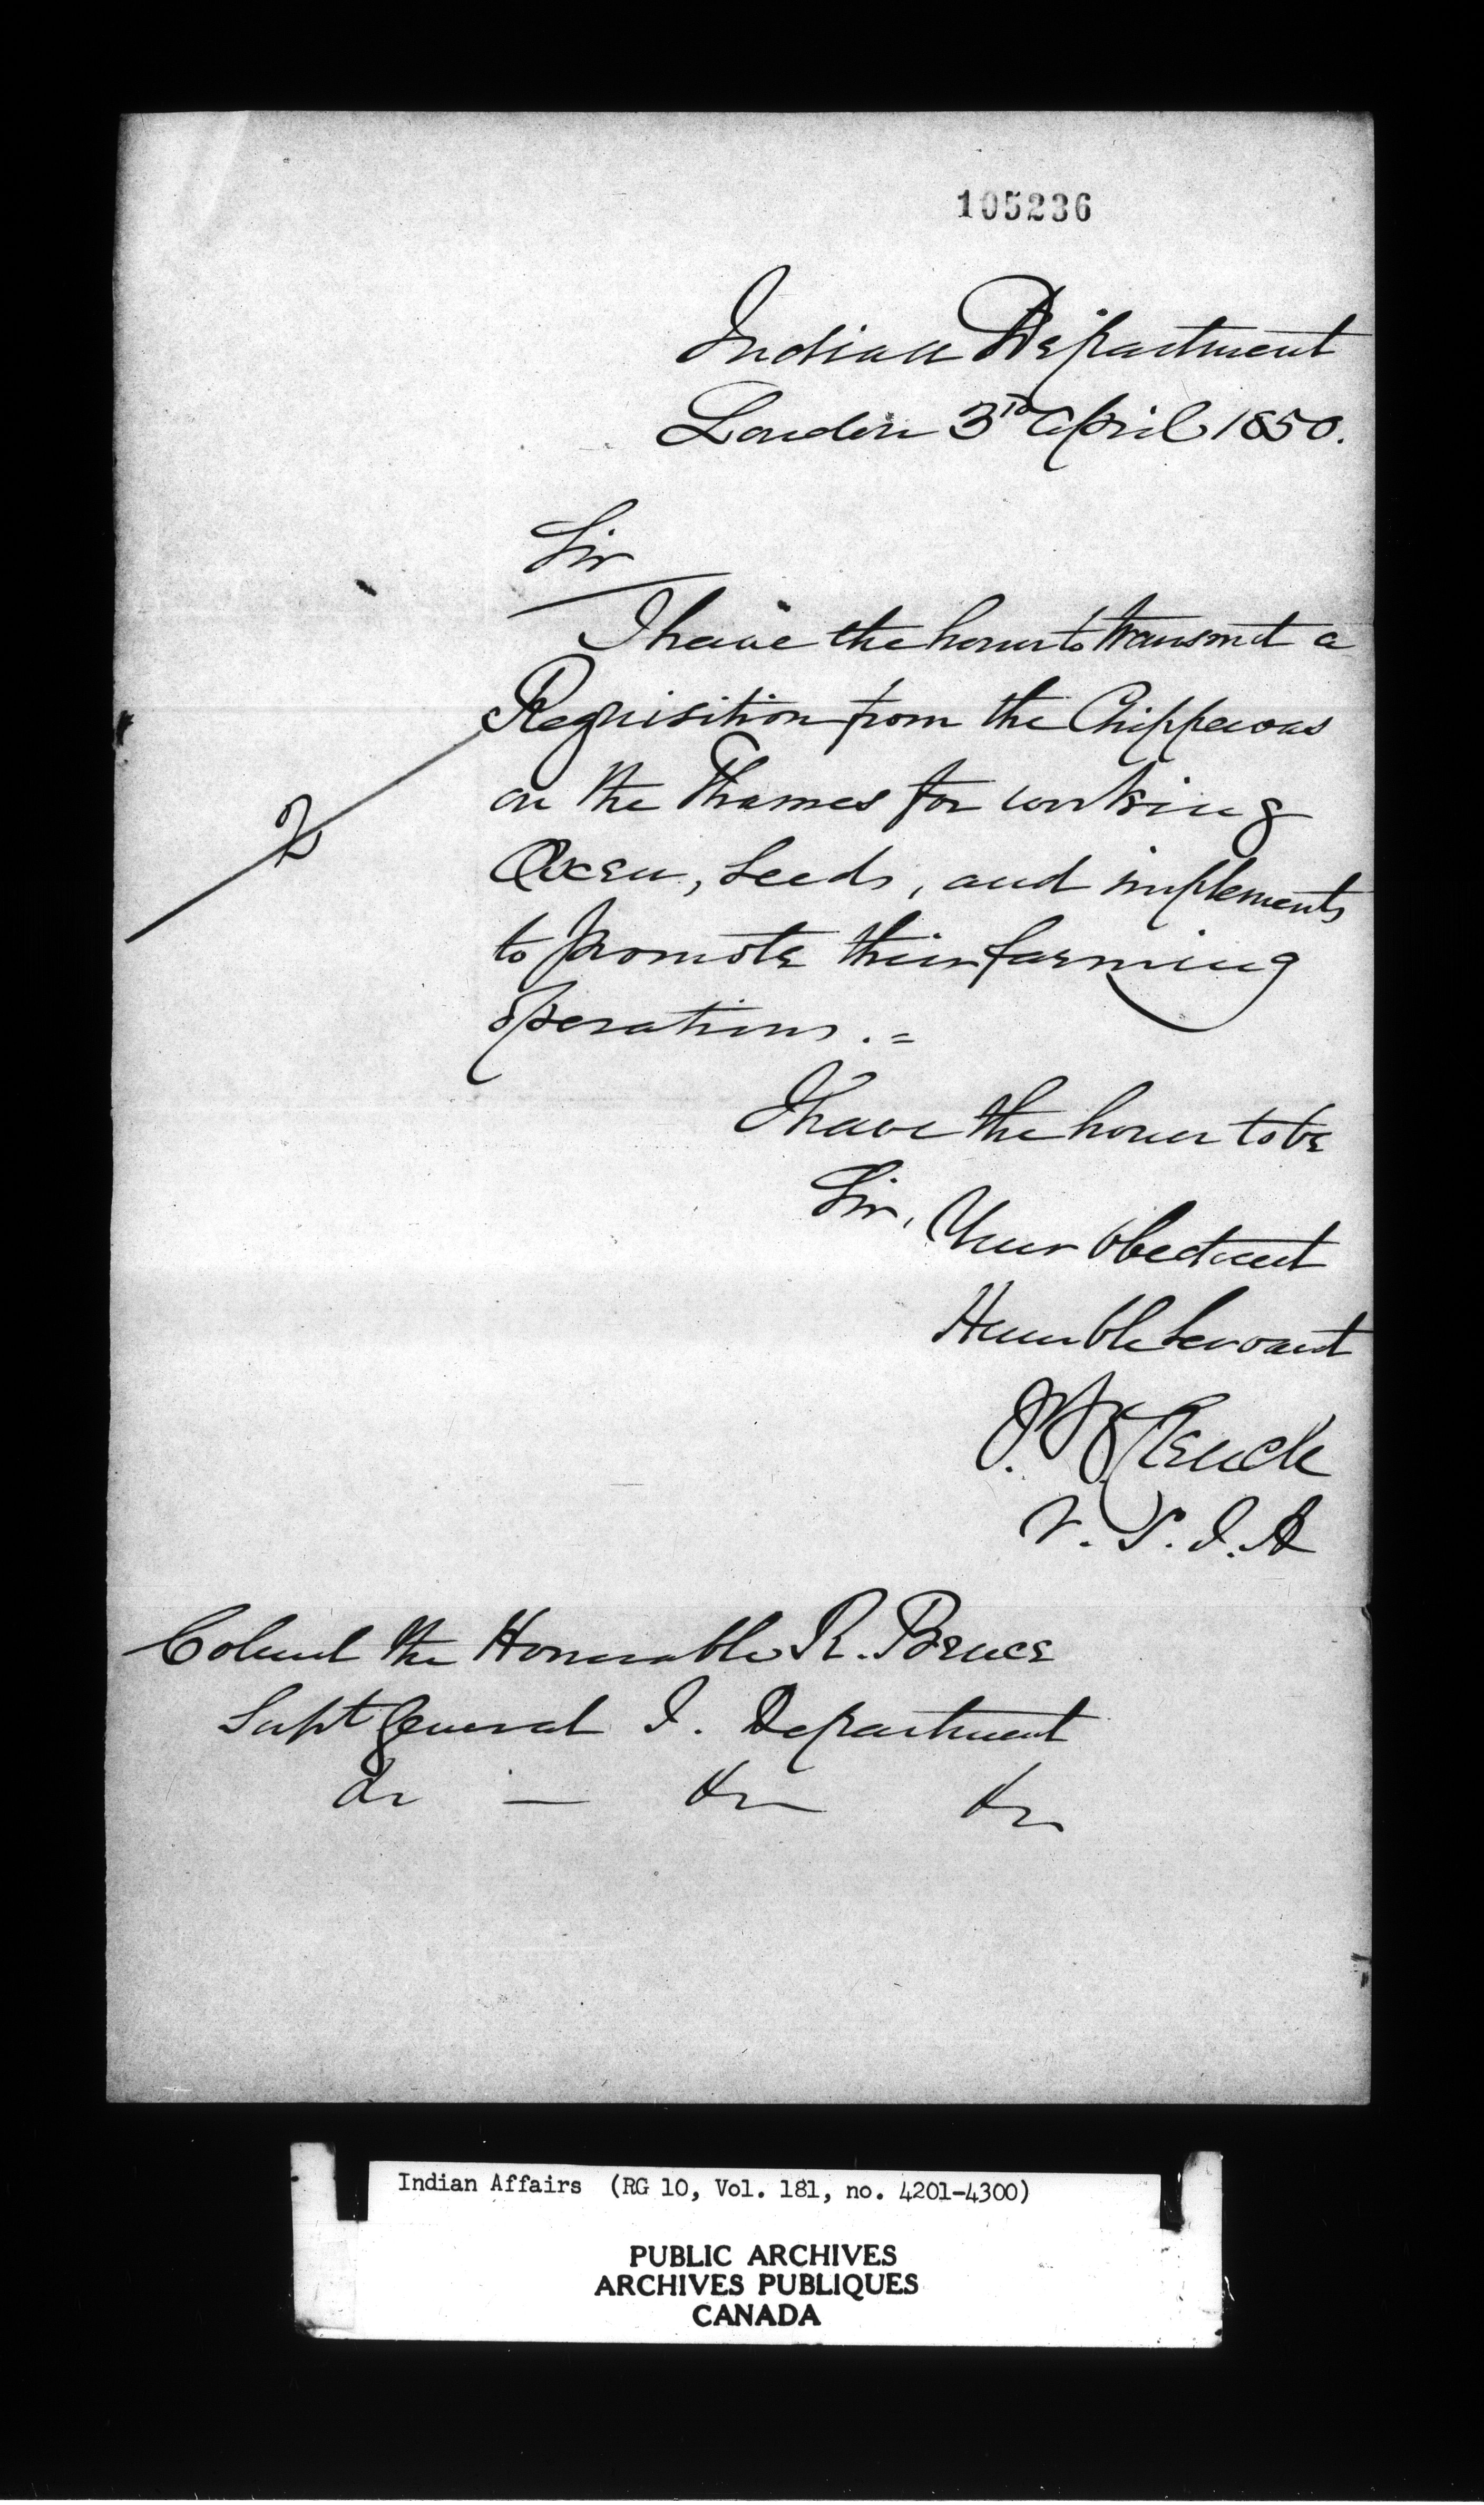 105236
Indian Department
London 3rd April 1850.
Sir
I have the honor to transmit a
Requisition from the Chippewas
on the Thames for working
Oxen, Seeds, and implements
to promote their farming
operations. =
I have the honor to be
Sir, Your obedient
Humble Servant
J. W. Clench
V. S. I. A
Colonel the Honorable R. Bruce
Supt General I. Department
Indian Affairs (RG 10, Vol. 181, no. 4201-4300)
PUBLIC ARCHIVES
ARCHIVES PUBLIQUES
CANADA